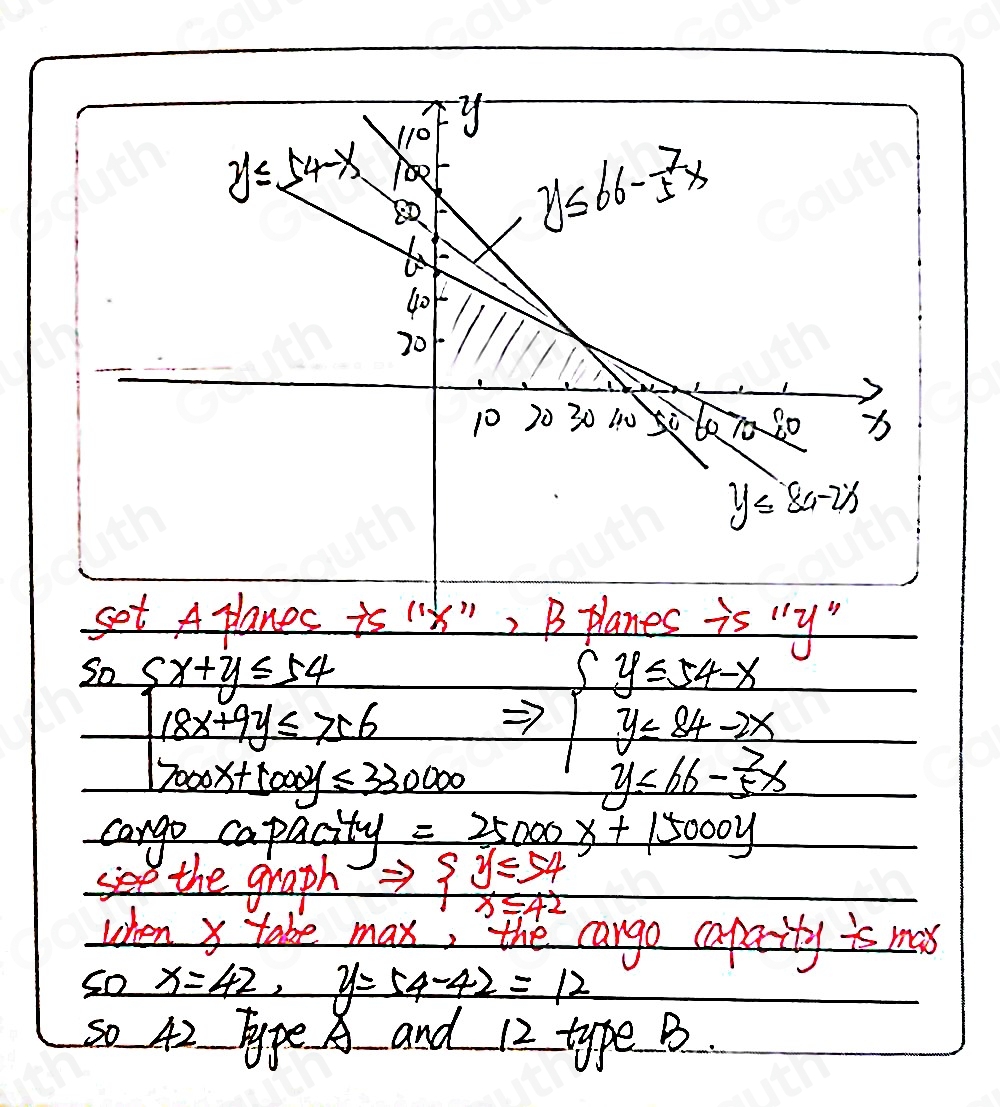 y
110
100
80
60
40
20
y≤54-x
y≤66-7/5x
10 20 30 40 50 60 70 80
x
y≤84-2x
set A planes is "x", B planes is "y"
so { x+y≤54 { y≤54-x
18x+9y≤756 ⇒ y≤84-2x
7000x+5000y≤330000 y≤66-7/5x
cargo capacity = 25000x+15000y
see the graph ⇒ { y≤54
x≤42
when x take max, the cargo capacity is max
so x=42, y=54-42=12
so 42 Type A and 12 type B.
Gauth